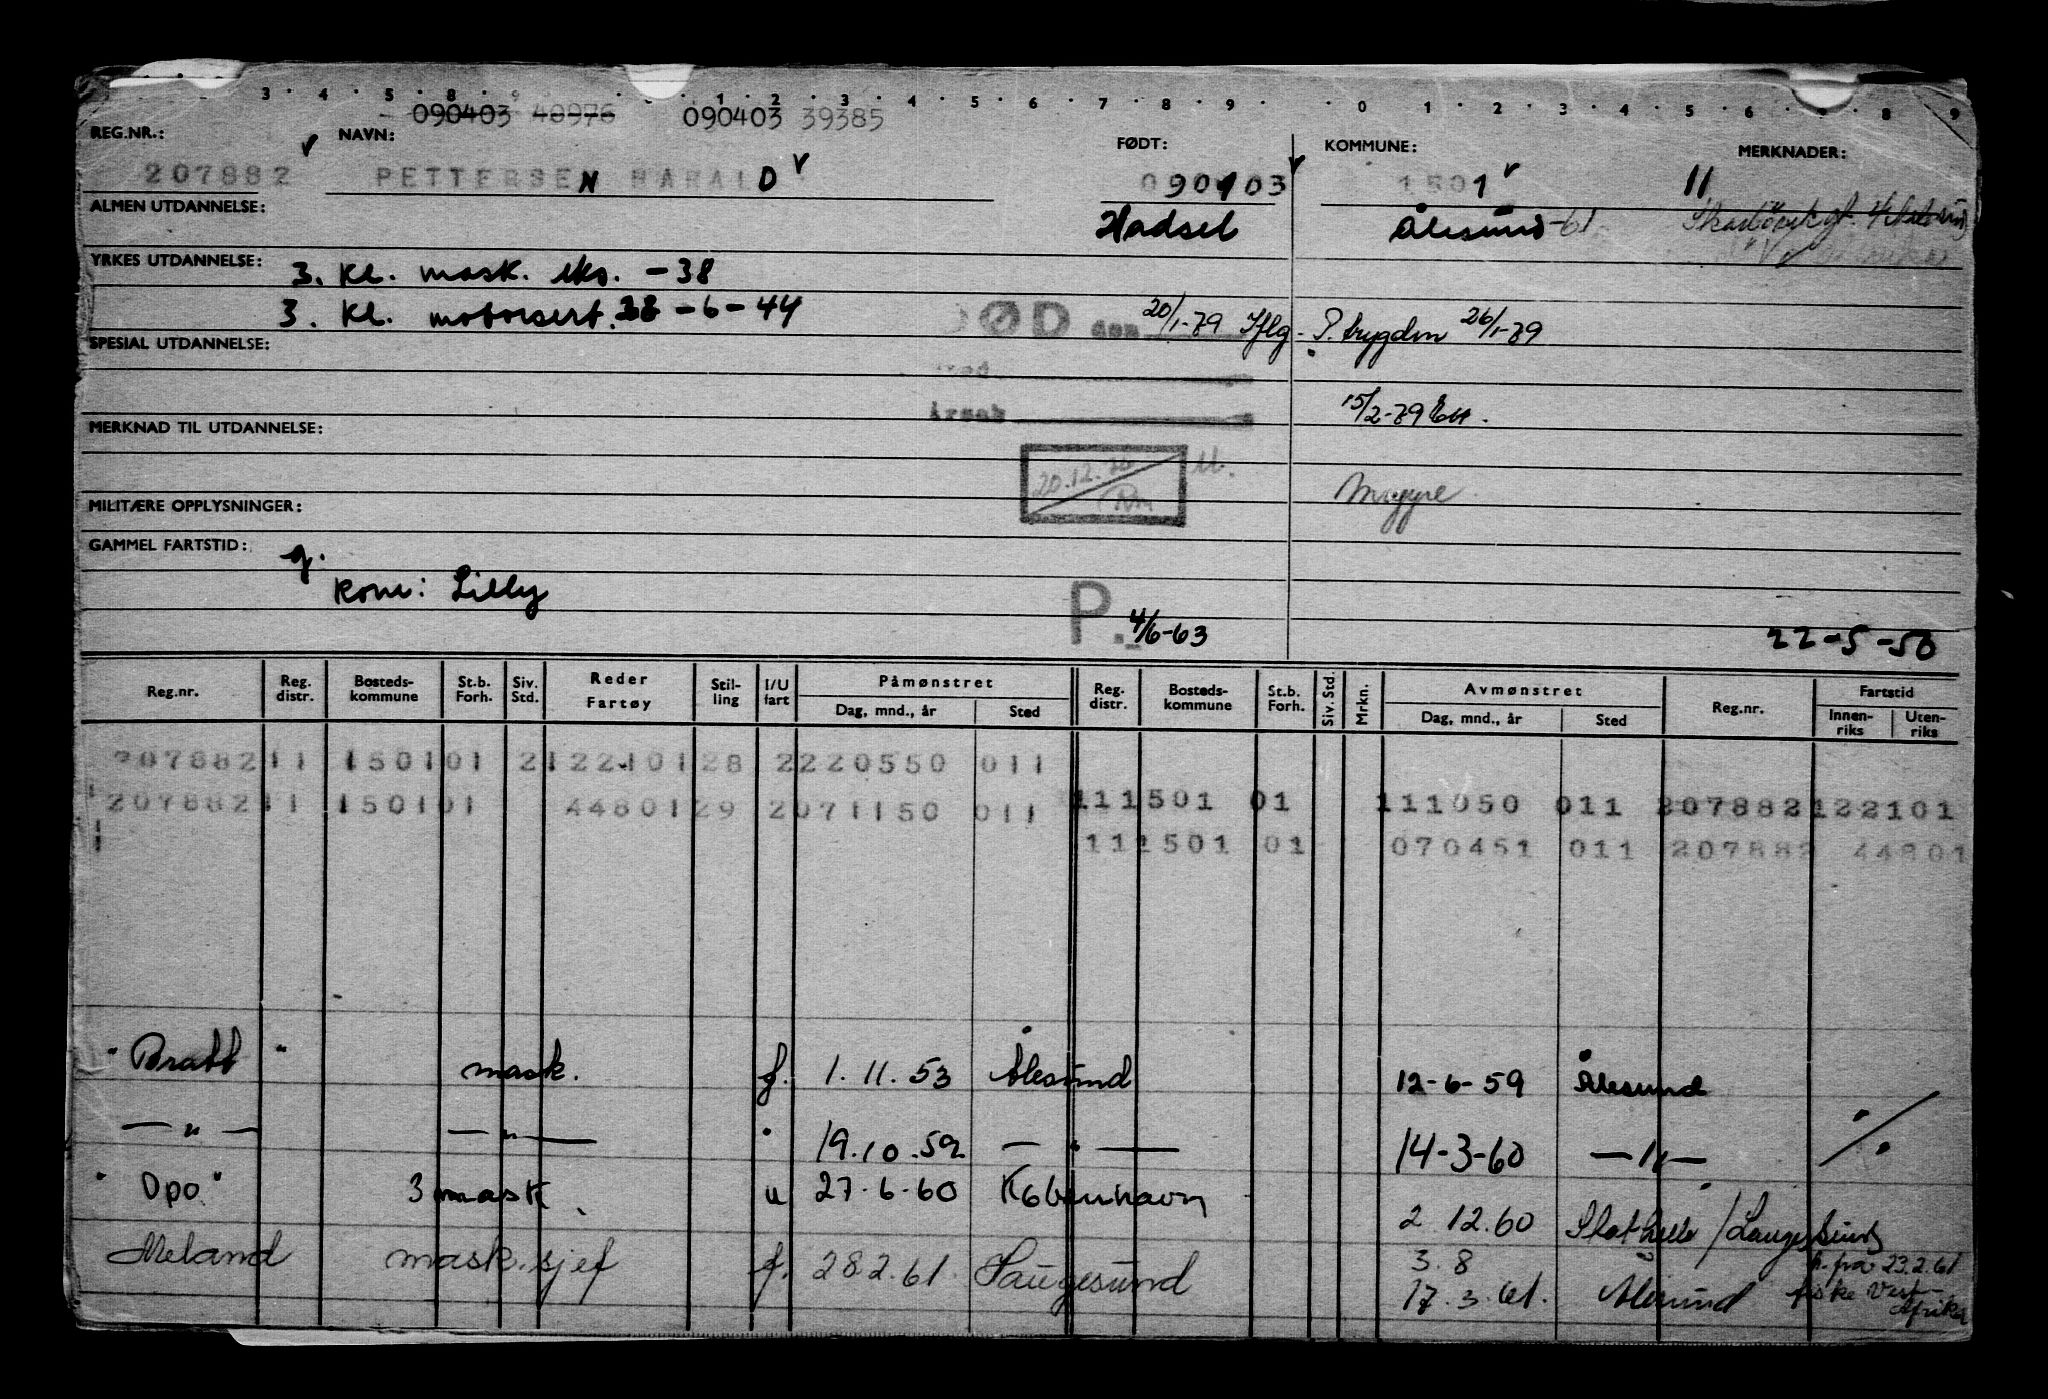 3 . 4 . 5 . 8 . 9 . . 1 . 2 . 3 . 4 . 5 . 6 . 7 . 8 . 9 . . 0 . 1 . 2 . 3 . 4 . 5 . 6 . 7 . 8 . 9
090403 40976 090403 39385
REG.NR.: NAVN: FØDT: KOMMUNE: MERKNADER:
207882 PETTERSEN HARALD 090403 1501 11
ALMEN UTDANNELSE: Hadsel Ålesund -61
YRKES UTDANNELSE: 3. kl. mask. eks. - 38
3. kl. motorsert. 28-6-44
DØD den 20/1-79 Iflg. P. trygden 26/1-79
SPESIAL UTDANNELSE:
Sted
Årsak 15/2-79
MERKNAD TIL UTDANNELSE:
20.12.
MILITÆRE OPPLYSNINGER:
GAMMEL FARTSTID: g.
Kone: Lilly
P. 4/6-63 22-5-50
Reg.nr. Reg. distr. Bosteds- kommune St.b. Forh. Siv. Std. Reder Fartøy Stil- ling I/U fart Påmønstret Dag, mnd., år Sted Reg. distr. Bosteds- kommune St.b. Forh. Siv. Std. Mrkn. Avmønstret Dag, mnd., år Sted Reg.nr. Fartstid Innen- riks Uten- riks
207882 11 1501 01 2 122101 28 2 220550 011
207882 11 1501 01 44801 29 2 071150 011 11 1501 01 111050 011 207882 122101
11 1501 01 070451 011 207882 44801
"Bratt" mask. f. 1.11.53 Ålesund 12-6-59 Ålesund
— " — — " — " 19.10.59 — " — 14-3-60 — " —
"Opo" 3 mask. u 27-6-60 København 2.12.60 Stathelle / Langesund
Meland mask.sjef f. 28.2.61. Haugesund 3.8 fra 23.2.61
17.3.61. Ålesund fiske Vest-
Afrika